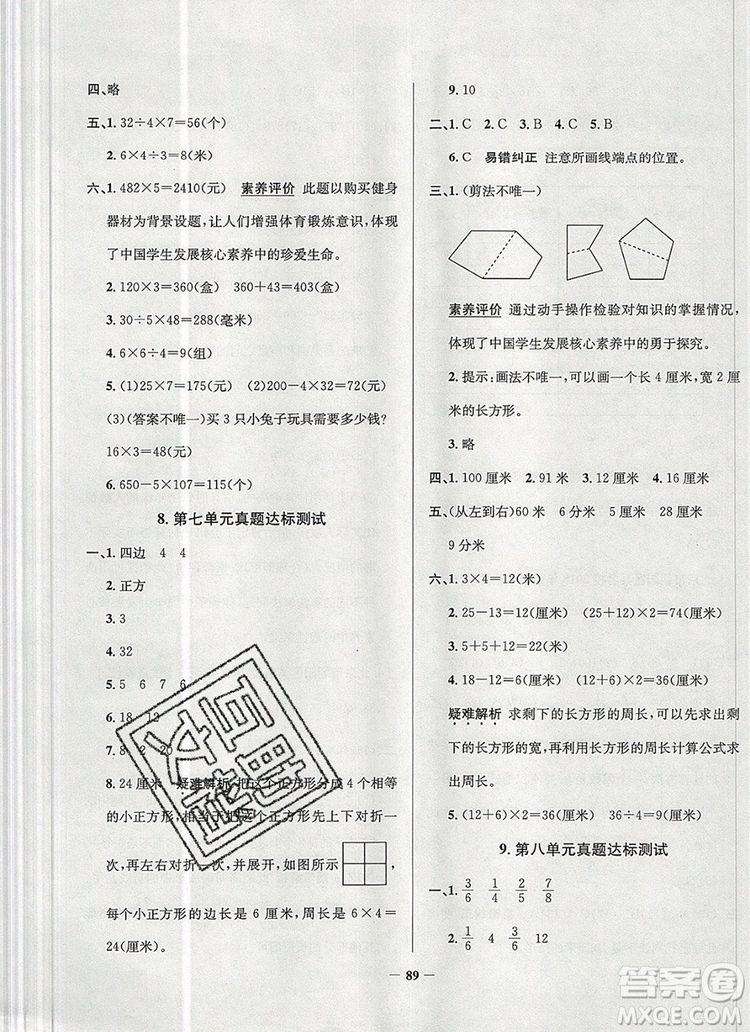 四、略
五、1. 32÷4×7=56(个)
2. 6×4÷3=8(米)
六、1. 482×5=2410(元) 素养评价 此题以购买健身
器材为背景设题,让人们增强体育锻炼意识,体现
了中国学生发展核心素养中的珍爱生命。
2. 120×3=360(盒) 360+43=403(盒)
3. 30÷5×48=288(毫米)
4. 6×6÷4=9(组)
5. (1)25×7=175(元) (2)200-4×32=72(元)
(3)(答案不唯一)买 3 只小兔子玩具需要多少钱?
16×3=48(元)
6. 650-5×107=115(个)
8. 第七单元真题达标测试
一、1. 四边 4 4
2. 正方
3. 3
4. 32
5. 5 6 7 6
6. 18 12
7. 8 20
8. 24 厘米 疑难解析 把这个正方形分成 4 个相等
的小正方形,相当于把这个正方形先上下对折一
次,再左右对折一次,并展开,如图所示
每个小正方形的边长是 6 厘米,周长是 6×4=
24(厘米)。
9. 10
二、1. C 2. C 3. B 4. C 5. B
6. C 易错纠正 注意所画线端点的位置。
三、1. (剪法不唯一)
素养评价 通过动手操作检验对知识的掌握情况,
体现了中国学生发展核心素养中的勇于探究。
2. 提示:画法不唯一,可画一个长 4 厘米,宽 2 厘
米的长方形。
3. 略
四、1. 100 厘米 2. 91 厘米 3. 12 厘米 4. 16 厘米
五、(从左到右)60 厘米 6 分米 5 厘米 28 厘米
9 分米
六、1. 3×4=12(米)
2. 25-13=12(厘米) (25+12)×2=74(厘米)
3. 5+5+12=22(厘米)
4. 18-12=6(厘米) (12+6)×2=36(厘米)
疑难解析 求剩下的长方形的周长,可以先求出剩
下的长方形的宽,再利用长方形的周长计算公式求
出周长。
5. (12+6)×2=36(厘米) 36÷4=9(厘米)
9. 第八单元真题达标测试
一、1. 3/6 1/4 5/9 4/8 4/7
2. 1/6 4 3/6 12
89
互助
文档
答案圈
MXQE.COM